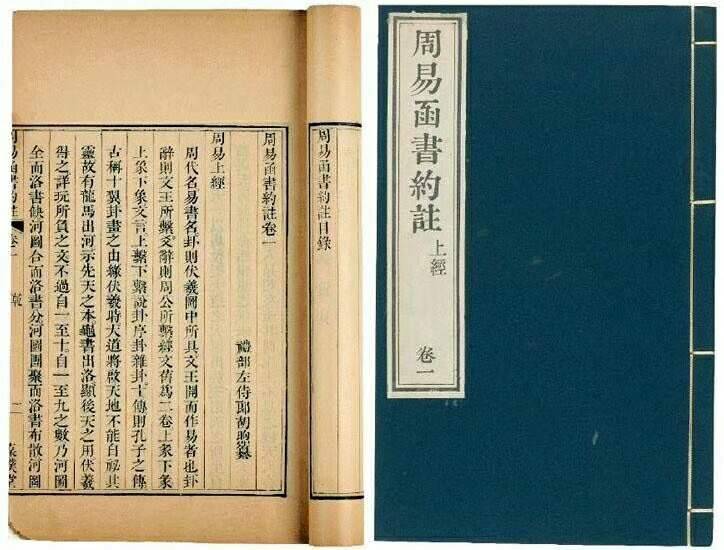 周易函書約註
上經
卷一
周易函書約註目錄
周易函書約註卷一
禮部左侍郎胡煦纂
周易上經
周代名易書名卦則伏羲圖中所具文王開而作易者也卦
辭則文王所繫爻辭則周公所繫經文舊爲二卷上彖下彖
上象下象文言上繫下繫說卦序卦雜卦十傳則孔子之傳
古稱十翼卦畫之由緣伏羲時天道將啟天地不能自祕其
靈故有龍馬出河示先天之本龜書出洛顯後天之用伏羲
得之詳玩所負之文不過自一至十自一至九之數乃河圖
全而洛書缺河圖合而洛書分河圖團聚而洛書布散河圖
周易函書約註 卷一 乾 一 葆璞堂